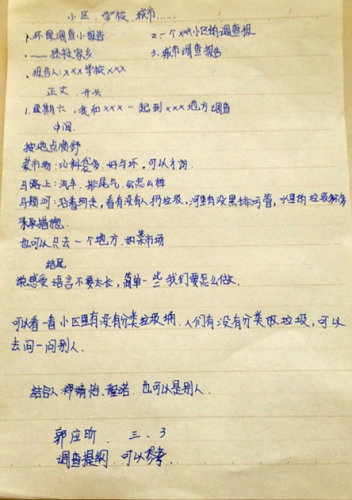 小区、学校、城市……
1.环保调查小报告 2.一个xx小区的调查报
1.——拯救家乡 3.城市调查报告
2.报告人:xxx学校xxx
正文 开头
1.星期六,我和xxx一起到xxx地方调查
中间
按地点顺序
菜市场:塑料袋多,好与坏,可以
马路上:汽车,排尾气,会怎么样
马颊河:沿着河走,看有没有人扔垃圾,河里有没黑排污管,水里的垃圾
采取措施
也可以只去一个地方.如菜市场
结尾
说感受 语言不要太长,简单一些 我们要怎么做.
可以看一看小区里有没有分类垃圾桶.人们有没有分类做垃圾,可以
去问一问别人.
结合人:郑靖怡、 也可以是别人.
郭应昕 三、3
调查提纲 可以参考